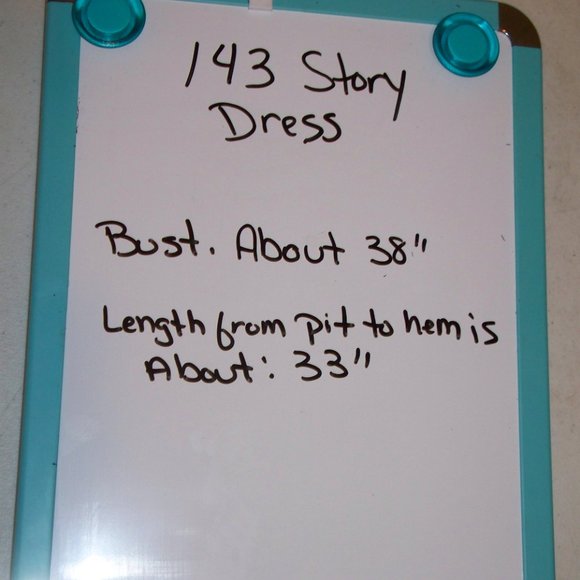 143 Story
Dress
Bust. About 38"
Length from pit to hem is
About: 33"